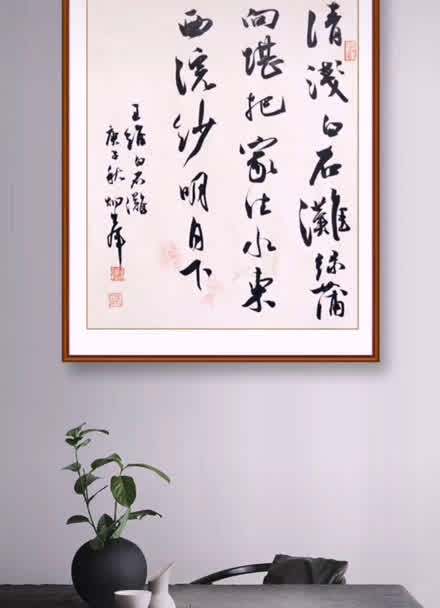 清淺白石灘綠蒲
向堪把家住水東
西浣紗明月下
王維白石灘
庚子秋